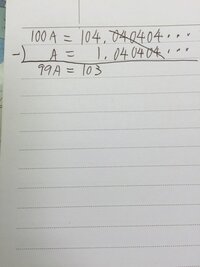 100A = 104.040404...
−) A = 1.040404...
99A = 103